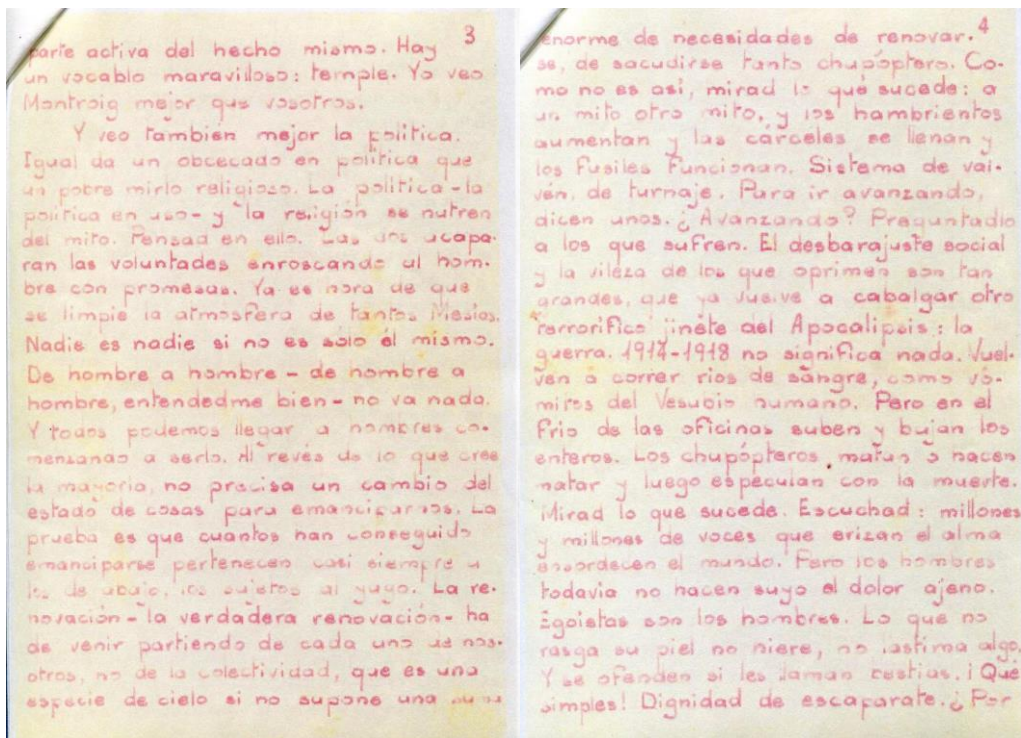 3
parte activa del hecho mismo. Hay
un vocablo maravilloso: temple. Yo veo
Montroig mejor que vosotros.
Y veo tambien mejor la política.
Igual da un obcecado en política que
un pobre mirlo religioso. La política - la
política en uso - y la religión se nutren
del mito. Pensad en ello. Las dos acapa-
ran las voluntades enroscando al hom-
bre con promesas. Ya es hora de que
se limpie la atmosfera de tantos Mesías.
Nadie es nadie si no es sólo él mismo.
De hombre a hombre - de hombre a
hombre, entendedme bien - no va nada.
Y todos podemos llegar a hombres co-
menzando a serlo. Al revés de lo que cree
la mayoría, no precisa un cambio del
estado de cosas para emanciparnos. La
prueba es que cuantos han conseguido
emanciparse pertenecen casi siempre a
los de abajo, los sujetos al yugo. La re-
novación - la verdadera renovación - ha
de venir partiendo de cada uno de nos-
otros, no de la colectividad, que es una
especie de cielo si no supone una suma
4
enorme de necesidades de renovar-
se, de sacudirse tanto chupóptero. Co-
mo no es así, mirad lo que sucede: a
un mito otro mito, y los hambrientos
aumentan y las cárceles se llenan y
los fusiles funcionan. Sistema de vai-
vén, de turnaje. Para ir avanzando,
dicen unos. ¿Avanzando? Preguntadlo
a los que sufren. El desbarajuste social
y la vileza de los que oprimen son tan
grandes, que ya vuelve a cabalgar otro
terrorífico jinete del Apocalipsis: la
guerra. 1914-1918 no significa nada. Vuel-
ven a correr ríos de sangre, como vó-
mitos del Vesubio humano. Pero en el
frío de las oficinas suben y bajan los
enteros. Los chupópteros matan o hacen
matar y luego especulan con la muerte.
Mirad lo que sucede. Escuchad: millones
y millones de voces que erizan el alma
ensordecen el mundo. Pero los hombres
todavía no hacen suyo el dolor ajeno.
Egoistas son los hombres. Lo que no
rasga su piel no hiere, no lastima algo.
Y se ofenden si les llaman bestias. ¡Qué
simples! Dignidad de escaparate. ¿Por